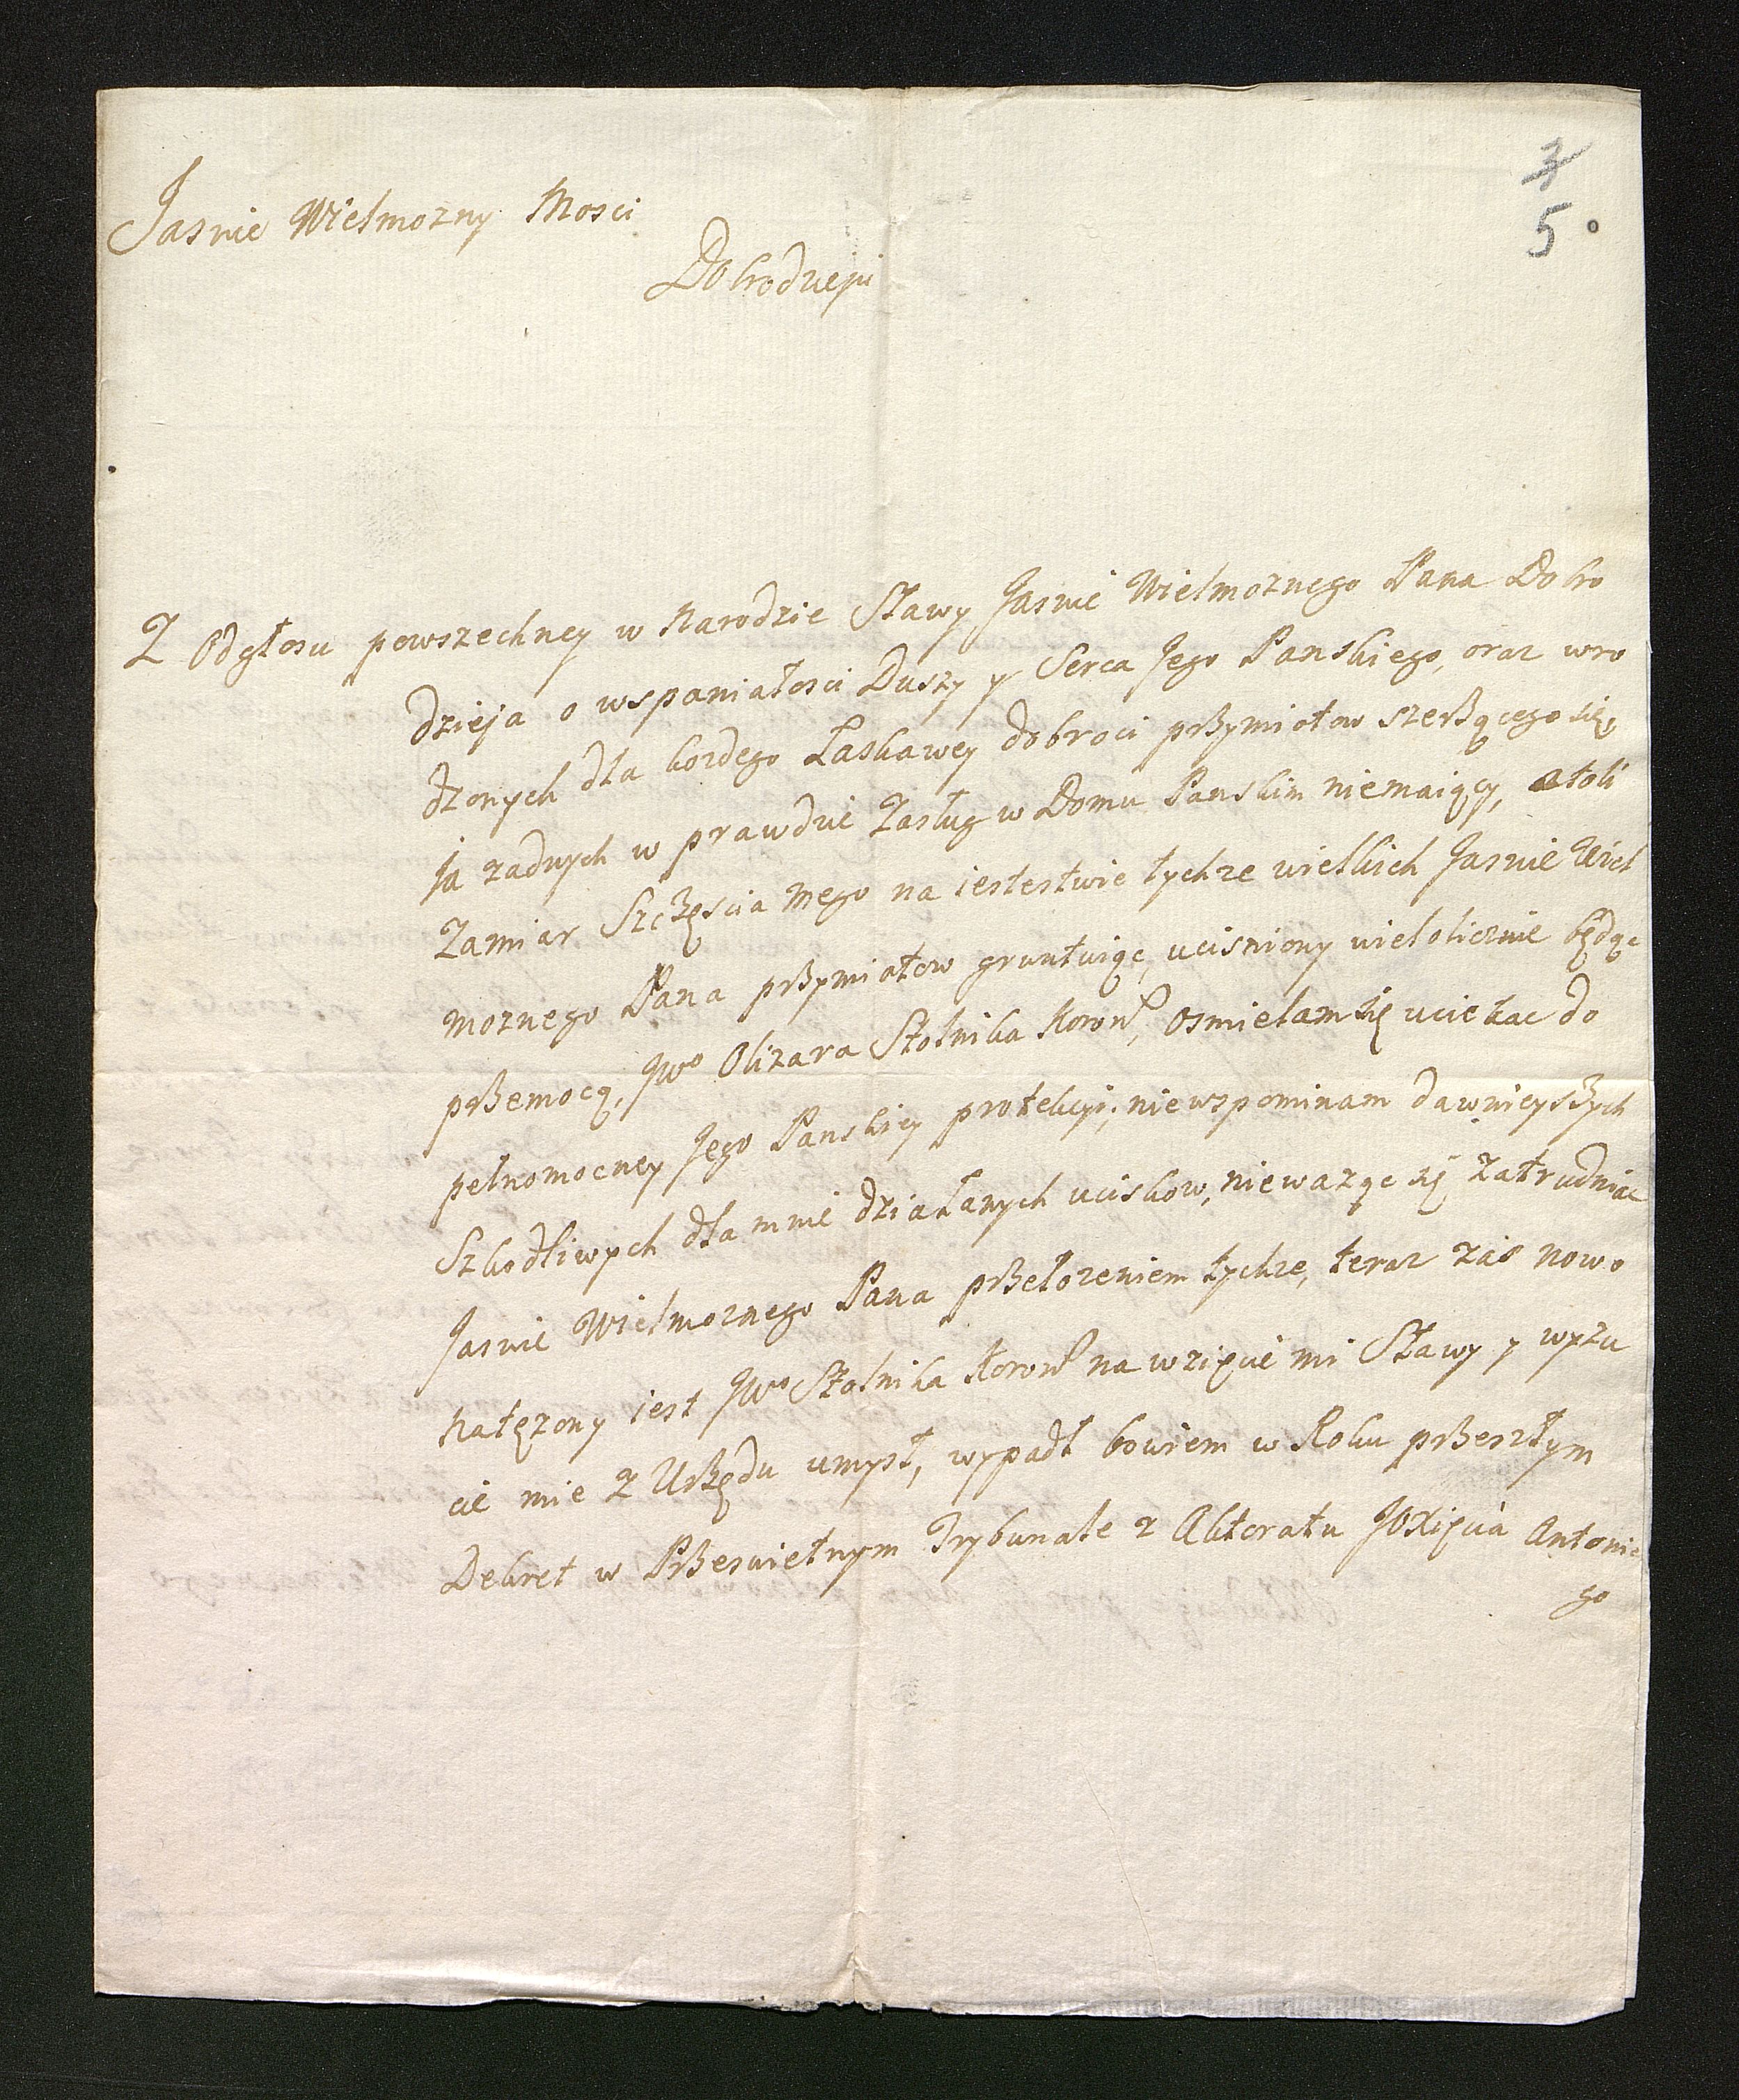 3
5
Jasnie Wielmozny Mosci
Dobrodzieju
Z Odgłosu powszechney w Narodzie Sławy Jasnie Wielmoznego Pana Dobro
dzieja o wspaniałosci Duszy y Serca Jego Panskiego, oraz wro
dzonych dla kozdego Łaskawey dobroci przymiotow szerzącego się,
ja zadnych w prawdzie Zasług w Domu Panskim niemaiący, atoli
Zamiar Szczęscia mego na iestestwie tychze wielkich Jasnie Wiel
moznego Pana przymiotow gruntuiąc, ucisniony wielolicznie będąc
przemocą, JWo Olizara Stolnika Koronl, osmielam się uciekac do
pełnomocney Jego Panskiey protekcyi; niewspominam dawnieyszych
Szkodliwych dla mnie działanych uciskow, niewaząc się Zatrudniac
Jasnie Wielmoznego Pana przełozeniem tychze, teraz zas nowo
natęzony iest JWo Stolnika Koronl na wzięcie mi Sławy y wyzu
cie mie z Urzędu umysł, wypadł bowiem w Roku przeszłym
Dekret w Przeswietnym Trybunale z Aktoratu JOXięcia Antonie
go